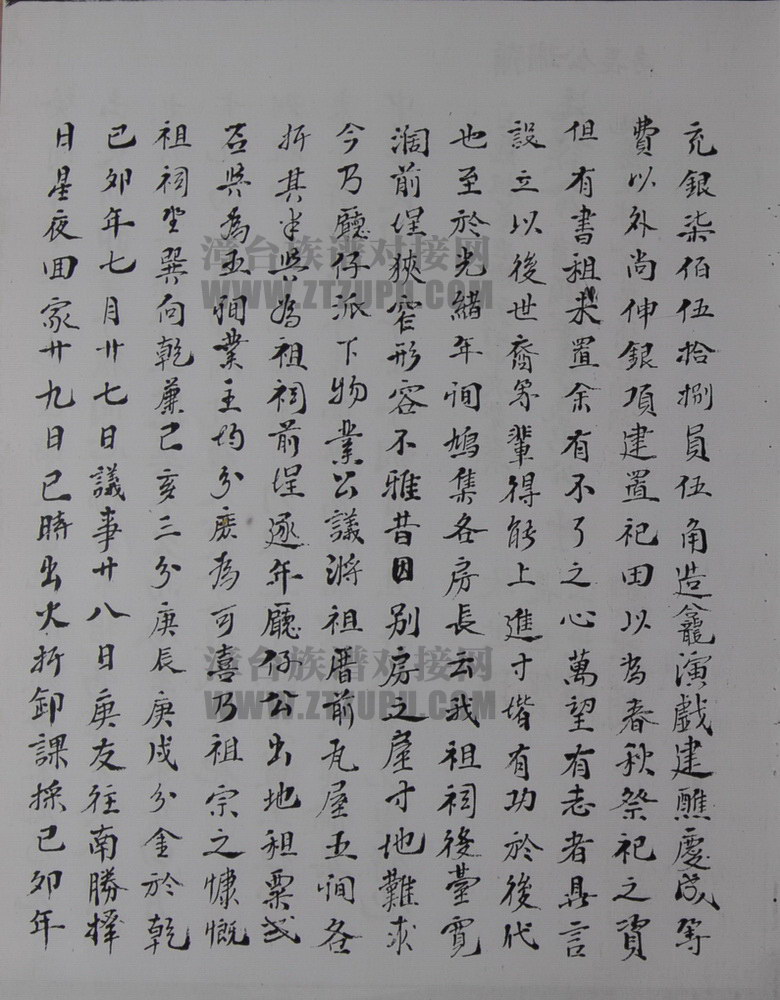 充銀柒佰伍拾捌員伍角造龕演戲建醮慶成等
費以外尚伸銀項建置祀田以為春秋祭祀之資
但有書租未置余有不了之心萬望有志者具言
設立以後世裔等輩得能上進寸堦有功於後代
也至於光緒年間鳩集各房長云我祖祠後臺寬
濶前埕狹窄形容不雅昔因别房之屋寸地難求
今乃廳仔派下物業公議將祖厝前瓦屋五間各
折其半與為祖祠前埕逐年廳仔公出地租粟弍
石與為五間業主均分庶為可喜乃祖宗之慷慨
祖祠坐巽向乾兼巳亥三分庚辰庚戌分金於乾
己卯年七月廿七日議事廿八日庚友往南勝擇
日星夜回家廿九日巳時出火折卸課採己卯年
漳台族谱对接网
WWW.ZTZUPU.COM
漳台族谱对接网
WWW.ZTZUPU.COM